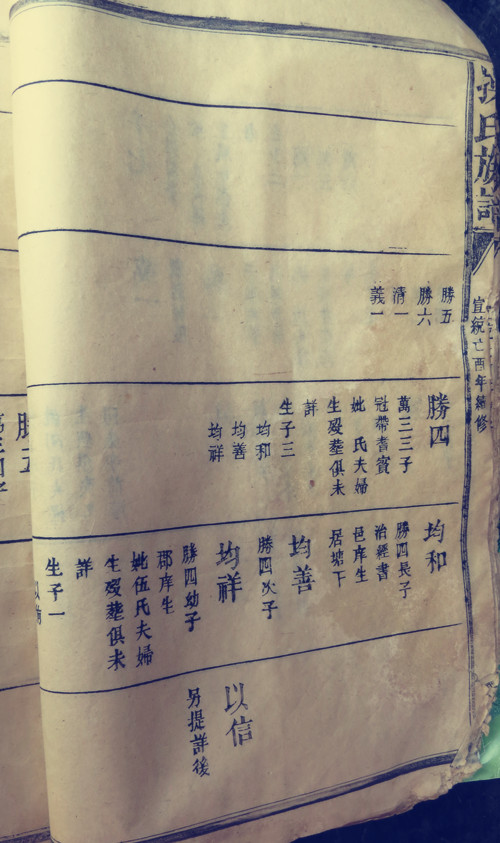 氏族譜
宣統亡酉年續修
勝五
勝六
清一
義一
勝四
萬三三子
冠帶耆賓
妣 氏夫婦
生殁塟俱未
詳
生子三
均和
均善
均祥
均和
勝四長子
治經書
邑庠生
居塘下
均善
勝四次子
均祥
勝四幼子
郡庠生
妣伍氏夫婦
生殁塟俱未
詳
生子一
以信
另提詳後